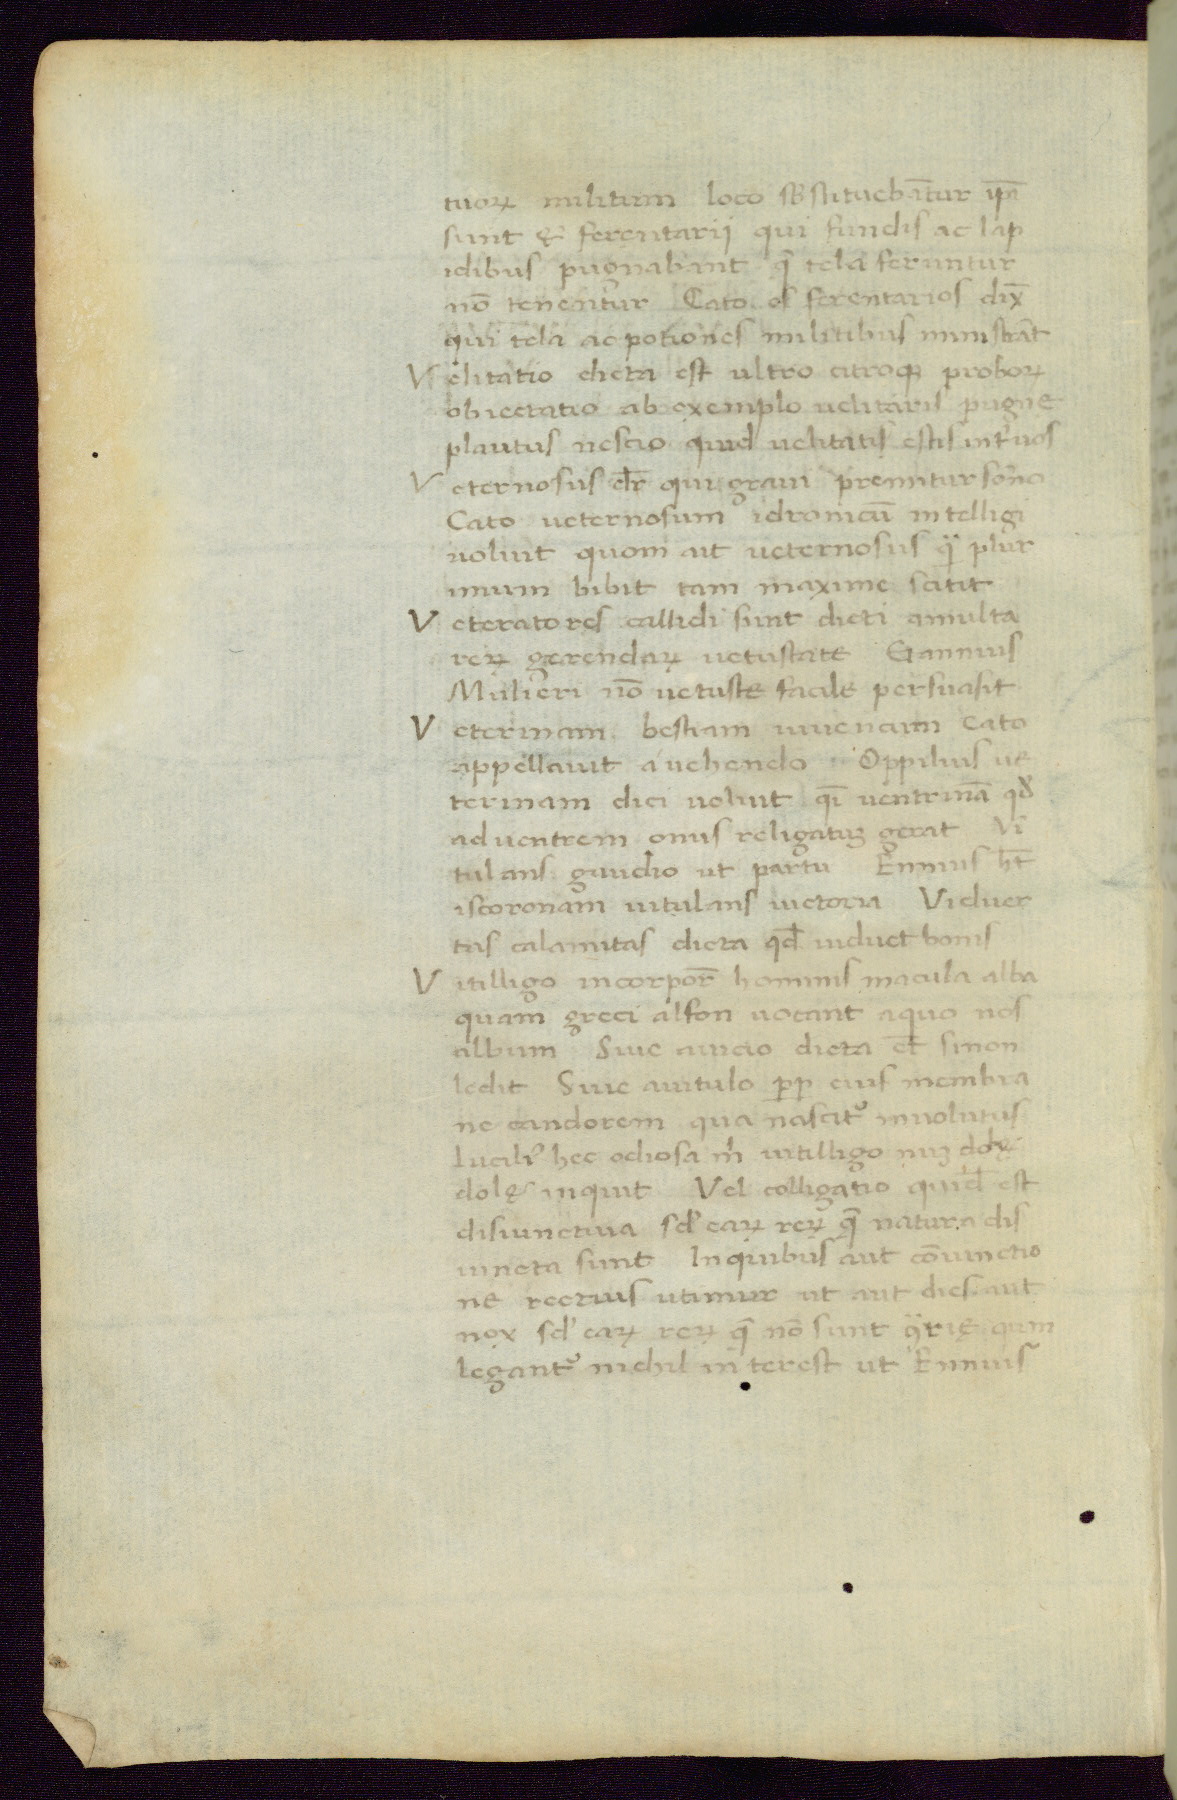 tuoꝝ militum loco sƀstituebāntur ip̄i
sunt & ferentarij qui fundis ac lap
idibus pugnabant q̄ tela feruntur
nō tenentur Cato eos ferentarios dix̄
qui tela ac potiones militibus ministrāt
Velitatio dicta est ultro citroqꝫ proboꝝ
obiectatio ab exemplo uelitaris pugnę
plautus nescio quid uelitatis estis int̄ uos
Veternosus dr̄ qui graui premitur sōno
Cato ueternosum idronicū intelligi
uoluit quom ait ueternosus q̄ plur
imum bibit tam maxime scitit
Veteratores callidi sunt dicti amulta
reꝝ gerendaꝝ uetustate Gannius
Mulieri nō uetustę facile persuasit
Veterinam bestiam iuuencum Cato
appellauit a uehendo Oppilius ue
terinam dici uoluit q̄i uentrinā qd̄
ad uentrem onus religatuꝫ gerat Vi
tulans gaudio ut partu Ennius h̄t
iscoronam uitulans uictoria Viduer
tas calamitas dicta qd̄ uiduet bonis
Vitilligo incorpor̄ hominis macula alba
quam greci alfon uocant aquo nos
album Siue auicio dicta et̄ sinon
ledit Siue auitulo pp̄ eius membra
ne candorem qua nascit᷑ inuolutus
Lucili᷒ hec odiosa m̄ uitilligo nuꝫ dolę
dolę inquit Vel colligatio quid̄ est
disiunctiua sd̓ eaꝝ reꝝ q̄ natura dis
iuncta sunt Inquibus aut cōiunctio
ne rectius utimur ut aut dies aut
nox sd̓ eaꝝ reꝝ q̄ nō sunt ꝯ̄rię qum
legant᷑ nichil interest ut Ennius